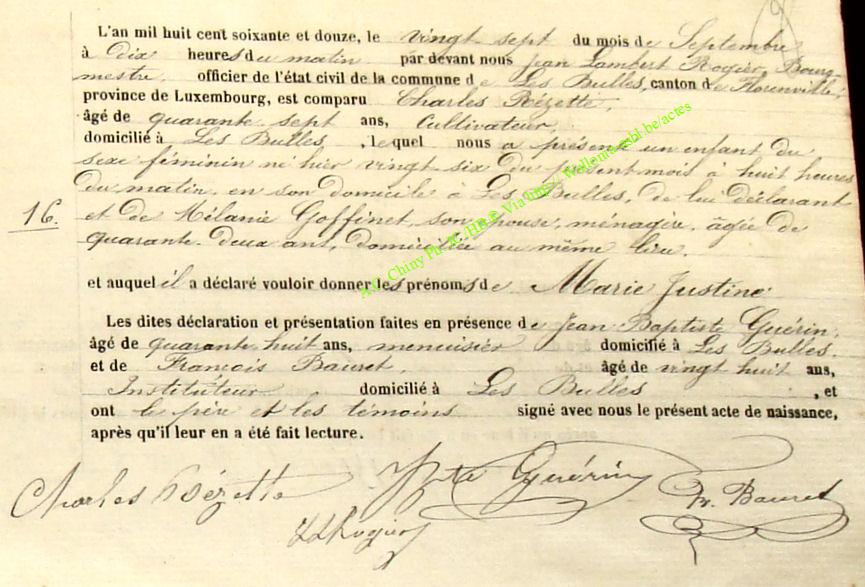 L'an mil huit cent soixante et douze, le vingt-sept du mois de Septembre
à dix heures du matin par devant nous Jean Lambert Rogier, Bourg-
mestre officier de l'état civil de la commune de Les Bulles, canton de Florenville,
province de Luxembourg, est comparu Charles Rézette,
âgé de quarante sept ans, Cultivateur,
domicilié à Les Bulles, lequel nous a présenté un enfant du
sexe féminin né hier vingt-six du présent mois à huit heures
du matin, en son domicile à Les Bulles, de lui déclarant
16. et de Mélanie Goffinet, son épouse, ménagère, âgée de
quarante-deux ans, domiciliée au même lieu.
et auquel il a déclaré vouloir donner les prénoms de Marie Justine
Les dites déclaration et présentation faites en présence de Jean Baptiste Guérin,
âgé de quarante huit ans, menuisier domicilié à Les Bulles.
et de François Bauret, âgé de vingt huit ans,
Instituteur domicilié à Les Bulles, et
ont le père et les témoins signé avec nous le présent acte de naissance,
après qu'il leur en a été fait lecture.
Charles Rézette Guérin Bauret
Rogier